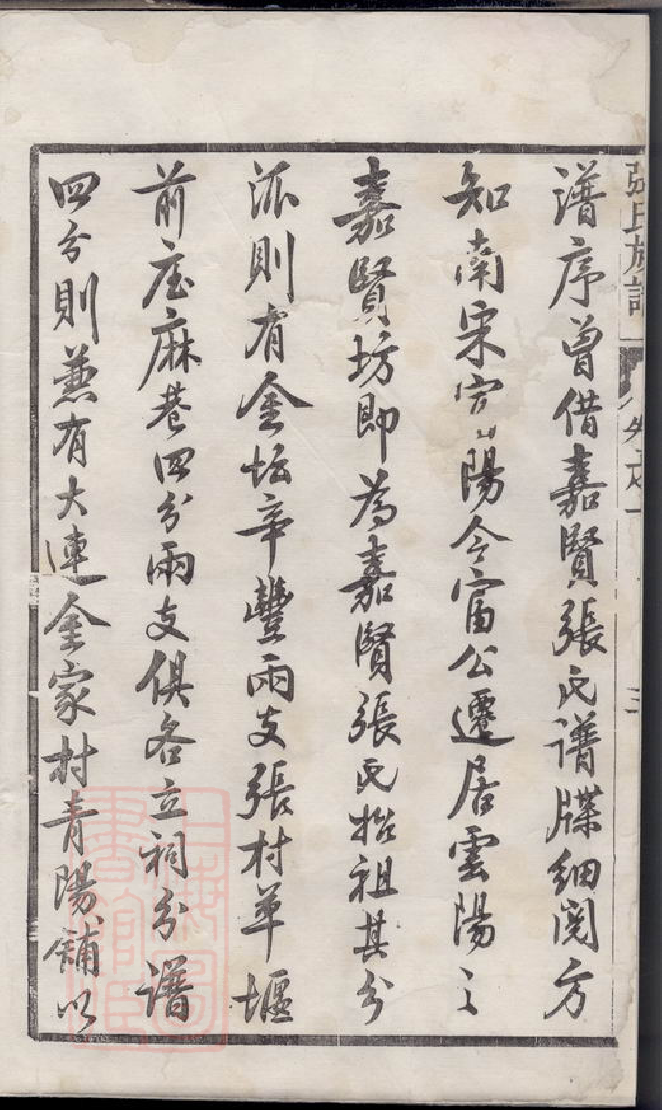 張氏族譜 卷之一 三
譜序曾借嘉賢張氏譜牒細閱方
知南宋宦陽令富公遷居雲陽之
嘉賢坊即為嘉賢張氏始祖其分
派則有金坛辛豐兩支張村草堰
前庄麻巷四分兩支俱各立祠分譜
四分則兼有大連金家村青陽舖以
上海圖書館藏